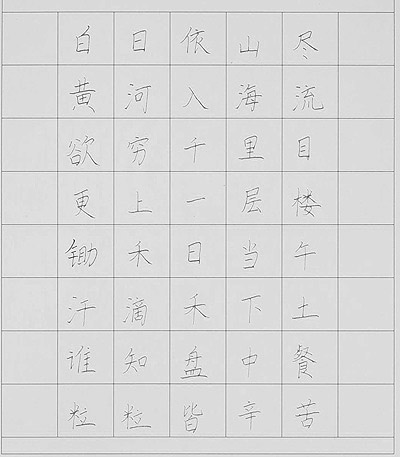 白日依山尽
黄河入海流
欲穷千里目
更上一层楼
锄禾日当午
汗滴禾下土
谁知盘中餐
粒粒皆辛苦